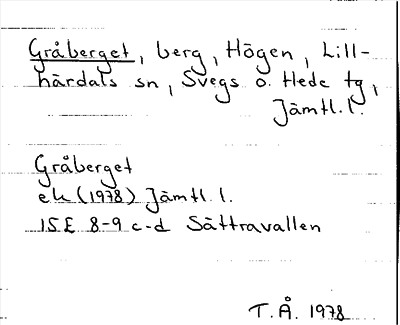 Gråberget, berg, Högen, Lill-
härdals sn, Svegs o. Hede tg,
Jämtl. l.
Gråberget
ek (1978) Jämtl. l.
15E 8-9 c-d Sättravallen
T.Å. 1978